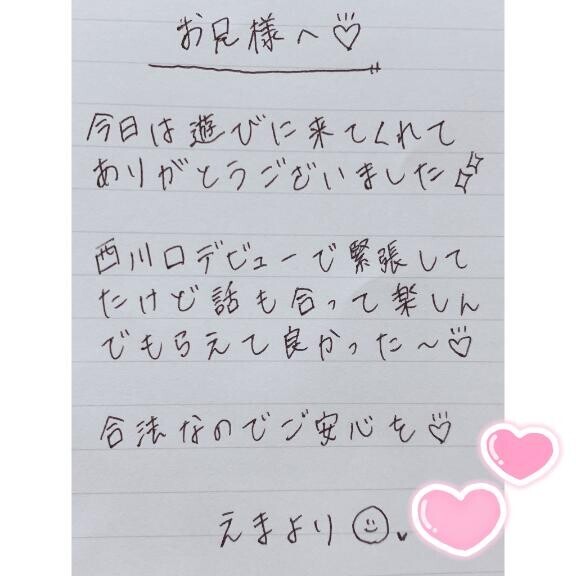 お兄様へ♡
今日は遊びに来てくれて
ありがとうございました✨
西川口デビューで緊張して
たけど話も合って楽しん
でもらえて良かった〜♡
合法なのでご安心を♡
えまより☺♥